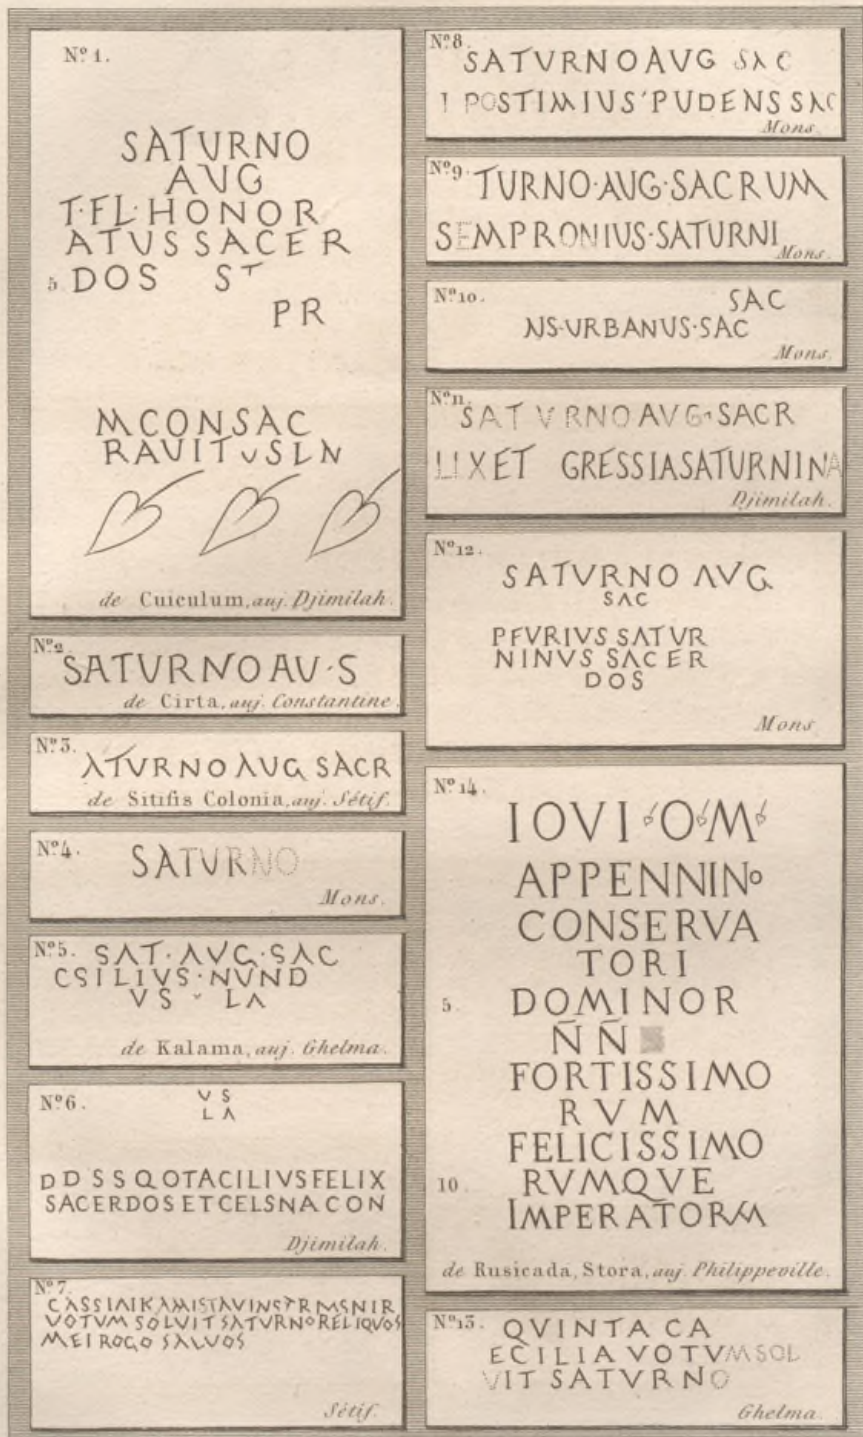 Nº 1.
SATURNO
AUG
T·FL·HONOR
ATUS SACER
5 DOS ST
PR
M CONSAC
RAVIT VSLN
de Cuiculum, auj. Djimilah.
Nº 2
SATURNO AU·S
de Cirta, auj. Constantine.
Nº 3.
ATURNO AUG SACR
de Sitifis Colonia, auj. Sétif.
Nº 4.
SATURNO
Mons.
Nº 5. SAT·AVG·SAC
CSILIVS·NUND
VS LA
de Kalama, auj. Ghelma.
Nº 6.
VS
LA
D D S S Q OTACILIVS FELIX
SACERDOS ET CELSNA CON
Djimilah.
Nº 7
VOTVM SOLVIT SATVRNO RELIQVOS
MEI ROGO SALVOS
Sétif.
Nº 8.
SATVRNO AVG SAC
I POSTIMIUS PUDENS SAC
Mons.
Nº 9. TURNO·AUG·SACRUM
SEMPRONIUS·SATURNI
Mons.
Nº 10.
SAC
NS·URBANUS·SAC
Mons.
Nº 11.
SATVRNO AVG SACR
LIX ET GRESSIA SATURNINA
Djimilah.
Nº 12.
SATVRNO AVG
SAC
PFVRIVS SATVR
NINVS SACER
DOS
Mons
Nº 14.
IOVI O M
APPENNINO
CONSERVA
TORI
5. DOMINOR
ÑÑ
FORTISSIMO
RVM
FELICISSIMO
10. RVMQVE
IMPERATORM
de Rusicada, Stora, auj. Philippeville.
Nº 13. QVINTA CA
ECILIA VOTVM SOL
VIT SATVRNO
Ghelma.